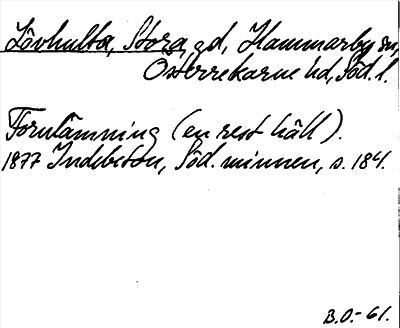 Lövhulta, Stora, gd, Hammarby sn,
Österrekarne hd, Söd. l.
Fornlämning (en rest häll).
1877 Indebetou, Söd. minnen, s. 184.
B.O.-61.